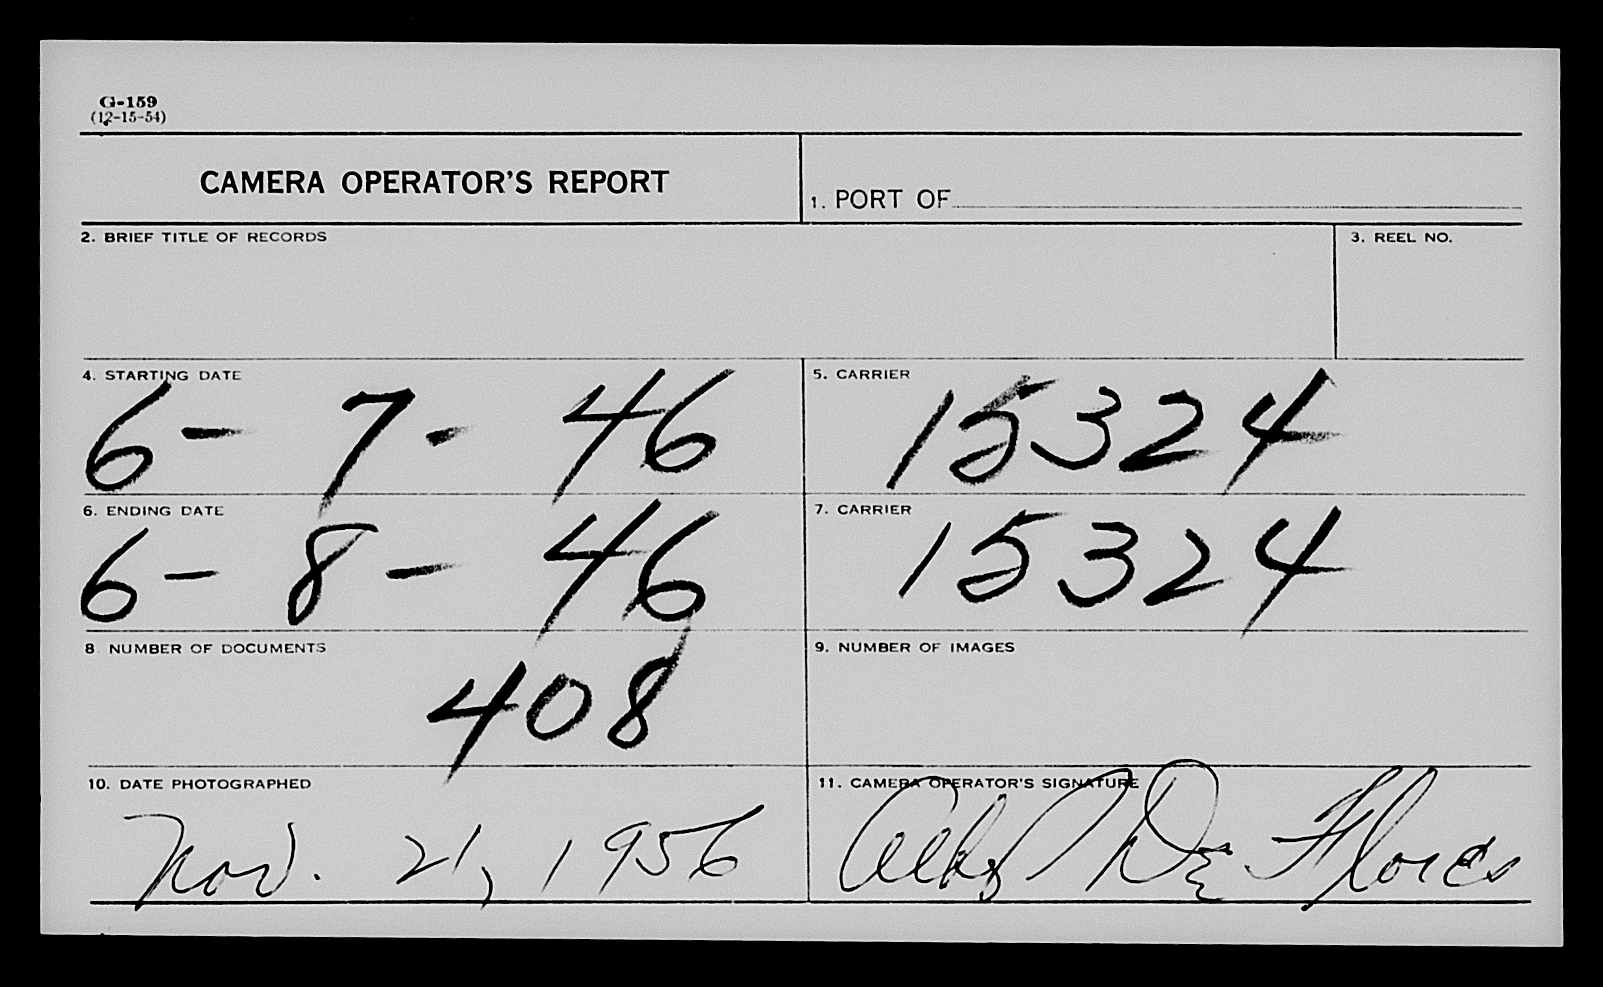 G-159
(12-15-54)
CAMERA OPERATOR'S REPORT
1. PORT OF
2. BRIEF TITLE OF RECORDS
3. REEL NO.
4. STARTING DATE
6- 7- 46
5. CARRIER
15324
6. ENDING DATE
6- 8- 46
7. CARRIER
15324
8. NUMBER OF DOCUMENTS
408
9. NUMBER OF IMAGES
10. DATE PHOTOGRAPHED
Nov. 21, 1956
11. CAMERA OPERATOR'S SIGNATURE
De Flores